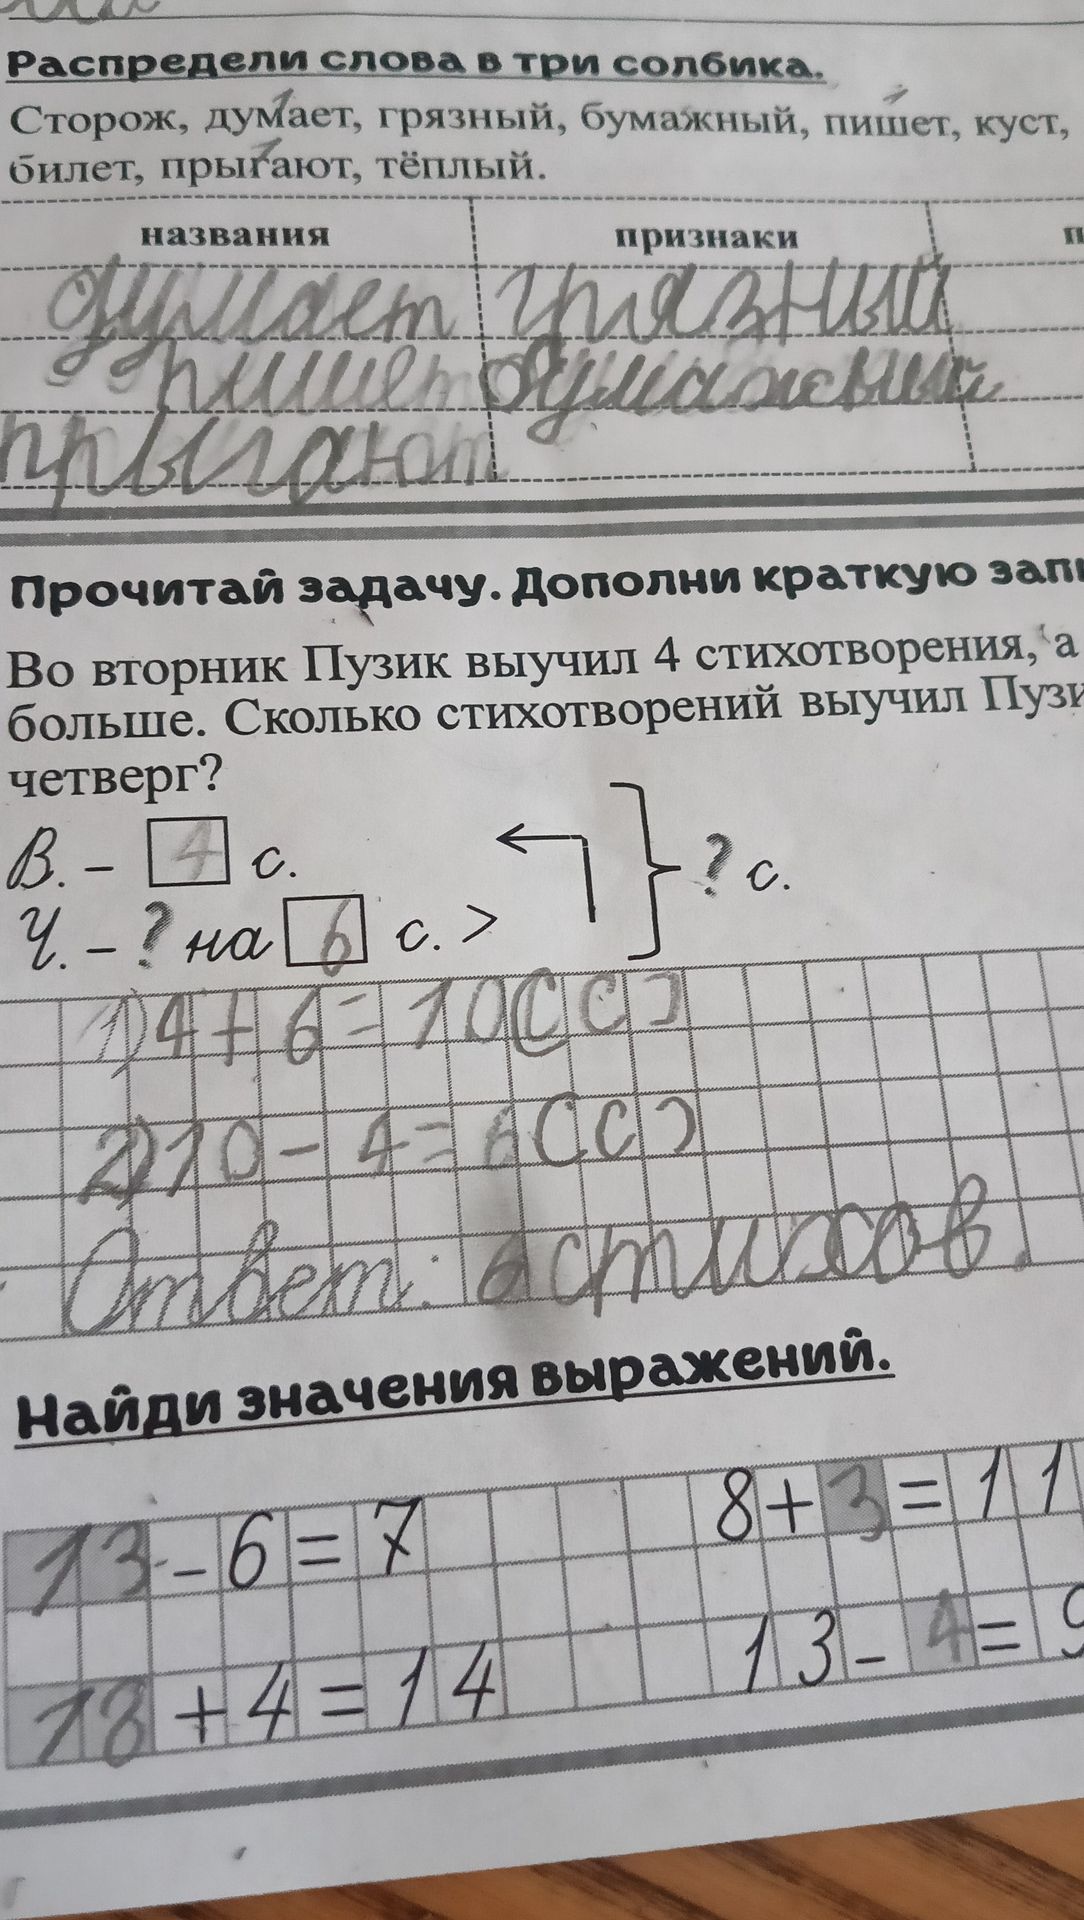 Распредели слова в три солбика.
Сторож, думает, грязный, бумажный, пишет, куст,
билет, прыгают, тёплый.
названия признаки п
думает грязный
пишет бумажный
прыгают
Прочитай задачу. Дополни краткую запи
Во вторник Пузик выучил 4 стихотворения, а
больше. Сколько стихотворений выучил Пузи
четверг?
В. – 4 с.
? с.
Ч. – ? на 6 с. >
1) 4 + 6 = 10 (с)
2) 10 - 4 = 6 (с)
Ответ: 6 стихов.
Найди значения выражений.
13 - 6 = 7 8 + 3 = 11
18 + 4 = 14 13 - 4 = 9